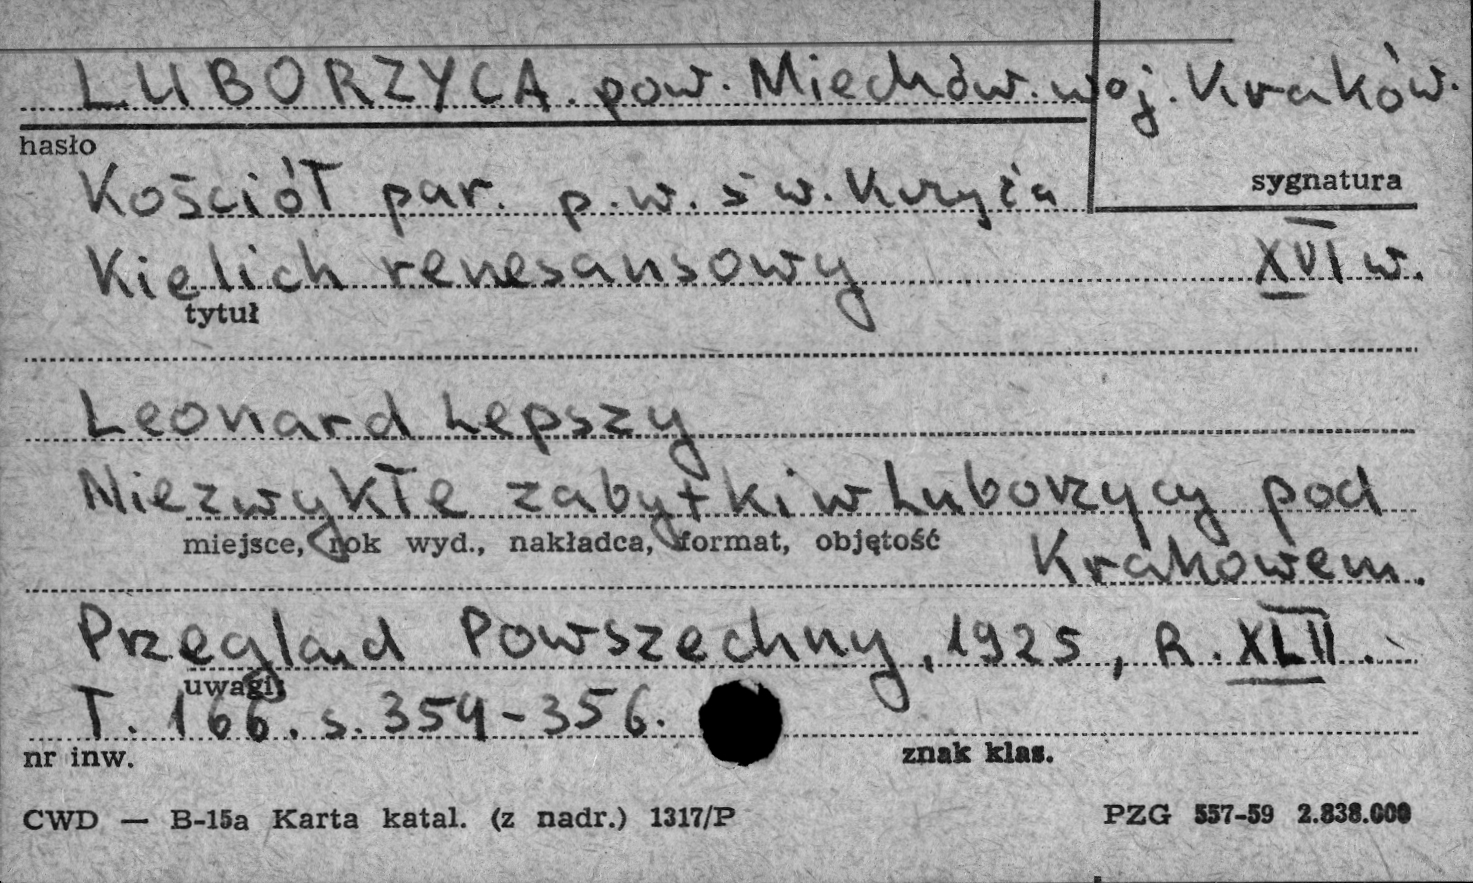 LUBORZYCA. pow. Miechów. woj. Kraków.
hasło
Kościół par. p.w. św. Krzyża
sygnatura
Kielich renesansowy XVI w.
tytuł
Leonard Lepszy
Niezwykłe zabytki w Luborzycy pod
miejsce, rok wyd., nakładca, format, objętość
Krakowem.
Przegląd Powszechny, 1925, R. XLII.
uwagi
T. 166. s. 354-356.
nr inw.
znak klas.
CWD — B-15a Karta katal. (z nadr.) 1317/P
PZG 557-59 2.838.000